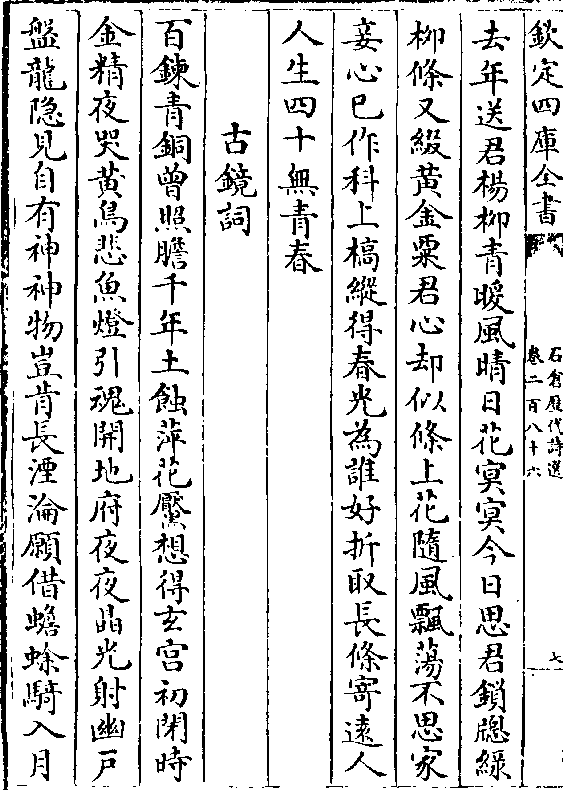 欽定四庫全書
石倉歷代詩選
卷二百八十六
七
去年送君楊柳青暖風晴日花冥冥今日思君鎖牕綠
柳條又綴黄金粟君心却似條上花隨風飄蕩不思家
妾心已作科上槁縱得春光為誰好折取長條寄遠人
人生四十無青春
古鏡詞
百鍊青銅曾照膽千年土蝕萍花黶想得玄宫初閉時
金精夜哭黄鳥悲魚燈引魂開地府夜夜晶光射幽户
盤龍隐見自有神神物豈肯長湮淪願借蟾蜍騎入月